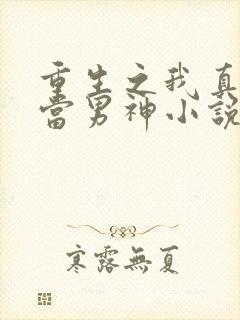 重生之我真
當男神小説
寒露無夏